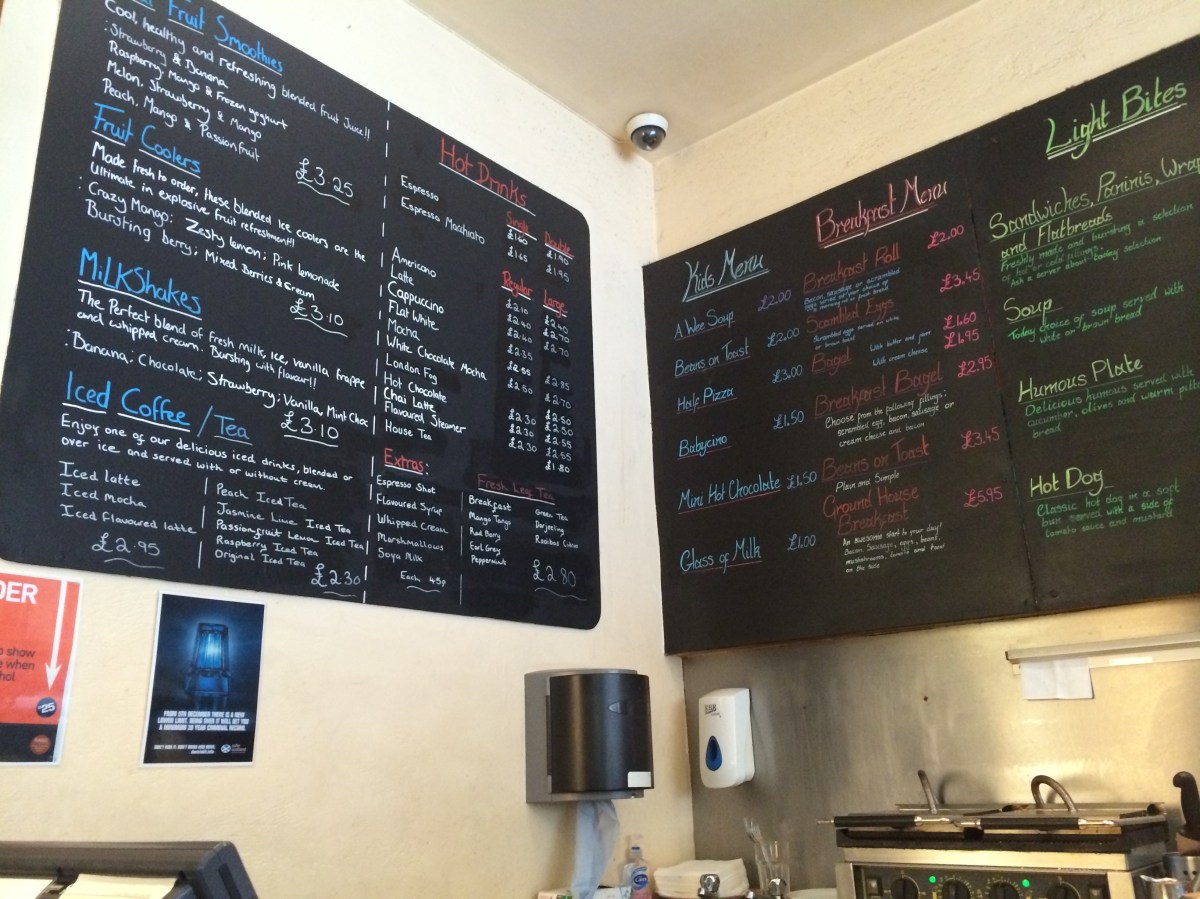 Fruit Smoothies
Cool, healthy and refreshing blended fruit juice!!
· Strawberry & Banana
Raspberry, Mango & Frozen yoghurt
Melon, Strawberry & Mango
Peach, Mango & Passionfruit
£3.25
Fruit Coolers
Made fresh to order, these blended ice coolers are the
ultimate in explosive fruit refreshment!!
· Crazy Mango; Zesty lemon; Pink lemonade
Bursting berry; Mixed Berries & Cream
£3.10
MiLKShakes
The Perfect blend of fresh milk, ice, vanilla frappe
and whipped cream. Bursting with flavour!!
· Banana; Chocolate; Strawberry; Vanilla, Mint Choc
£3.10
Iced Coffee / Tea
Enjoy one of our delicious iced drinks, blended or
over ice and served with or without cream
Iced latte
Iced Mocha
Iced flavoured latte
£2.95
Peach Iced Tea
Jasmine Lime Iced Tea
Passionfruit Lemon Iced Tea
Raspberry Iced Tea
Original Iced Tea
£2.30
Hot Drinks
Single Double
Espresso £1.60 £1.90
Espresso Macchiato £1.65 £1.95
Regular Large
Americano £2.10 £2.40
Latte £2.40 £2.70
Cappuccino £2.40 £2.70
Flat White £2.35
Mocha £2.55 £2.85
White Chocolate Mocha
London Fog £2.50 £2.70
Hot Chocolate £2.50
Chai Latte £2.30 £2.50
Flavoured Steamer £2.30 £2.55
House Tea £2.30 £2.55
£1.80
Extras:
Espresso Shot
Flavoured Syrup
Whipped Cream
Marshmallows
Soya Milk
Each 45p
Fresh Leaf Tea
Breakfast
Mango Tango
Red Berry
Earl Grey
Peppermint
Green Tea
Darjeeling
Rooibos Citrus
£2.80
Kids Menu
A Wee Soup £2.00
Beans on Toast £2.00
Half Pizza £3.00
Babycino £1.50
Mini Hot Chocolate £1.50
Glass of Milk £1.00
Breakfast Menu
Breakfast Roll £2.00
Bacon, sausage or scrambled
Scrambled Eggs £3.45
Scrambled eggs served on white
or brown toast
Bagel With butter and jam £1.60
With cream cheese £1.95
Breakfast Bagel £2.95
Choose from the following fillings:
scrambled egg, bacon, sausage or
cream cheese and bacon
Beans on Toast £3.45
Plain and Simple
Ground House
Breakfast £5.95
An awesome start to your day!
Bacon, Sausage, eggs, beans,
mushrooms, and toast
on the side
Light Bites
Sandwiches, Paninis, Wrap
and Flatbreads
Freshly made and bursting a selection
of hot or cold fillings.
Ask a server about today selection
Soup
Today choice of soup served with
white or brown bread
Humous Plate
Delicious humous served with
cucumber, olives and warm pitt
bread
Hot Dog
Classic hot dog in a soft
bun, served with a side of
tomato sauce and mustard
DER
o show
e when
hol
25
FROM 5TH DECEMBER THERE IS A NEW
LOWER LIMIT. BEING OVER IT WILL GET YOU
A MINIMUM 20 YEAR CRIMINAL RECORD.
DON'T RISK IT. DON'T DRINK AND DRIVE.